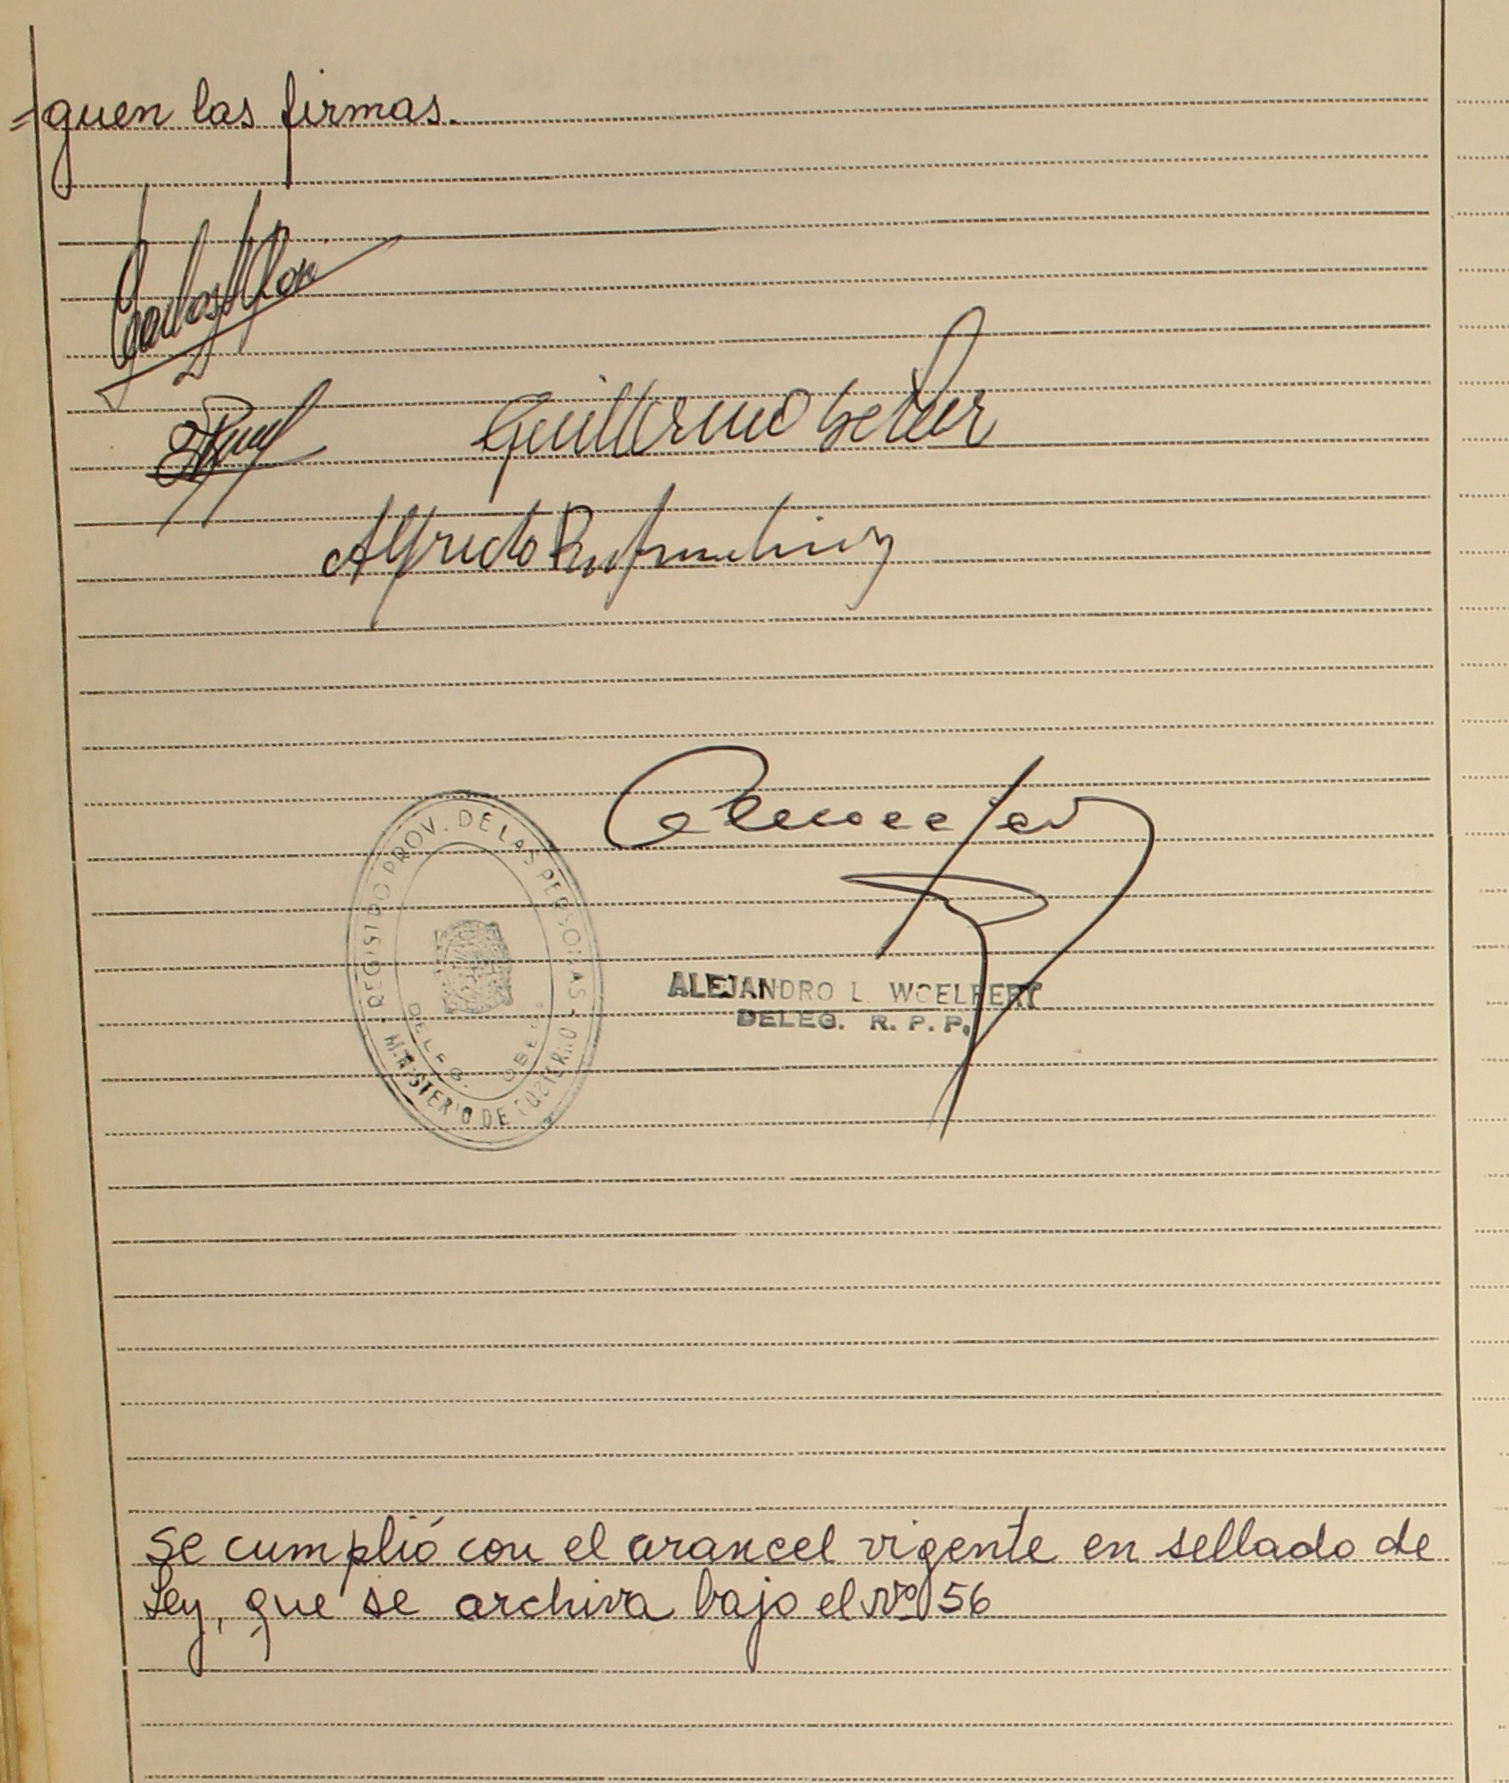 =guen las firmas.
Guillermo
Alfredo
REGISTRO PROV. DE LAS PERSONAS
MINISTERIO DE GOBIERNO
DELEG.
ALEJANDRO L. WOELFERT
DELEG. R. P. P.
Se cumplió con el arancel vigente en sellado de
Ley, que se archiva bajo el Nº 56